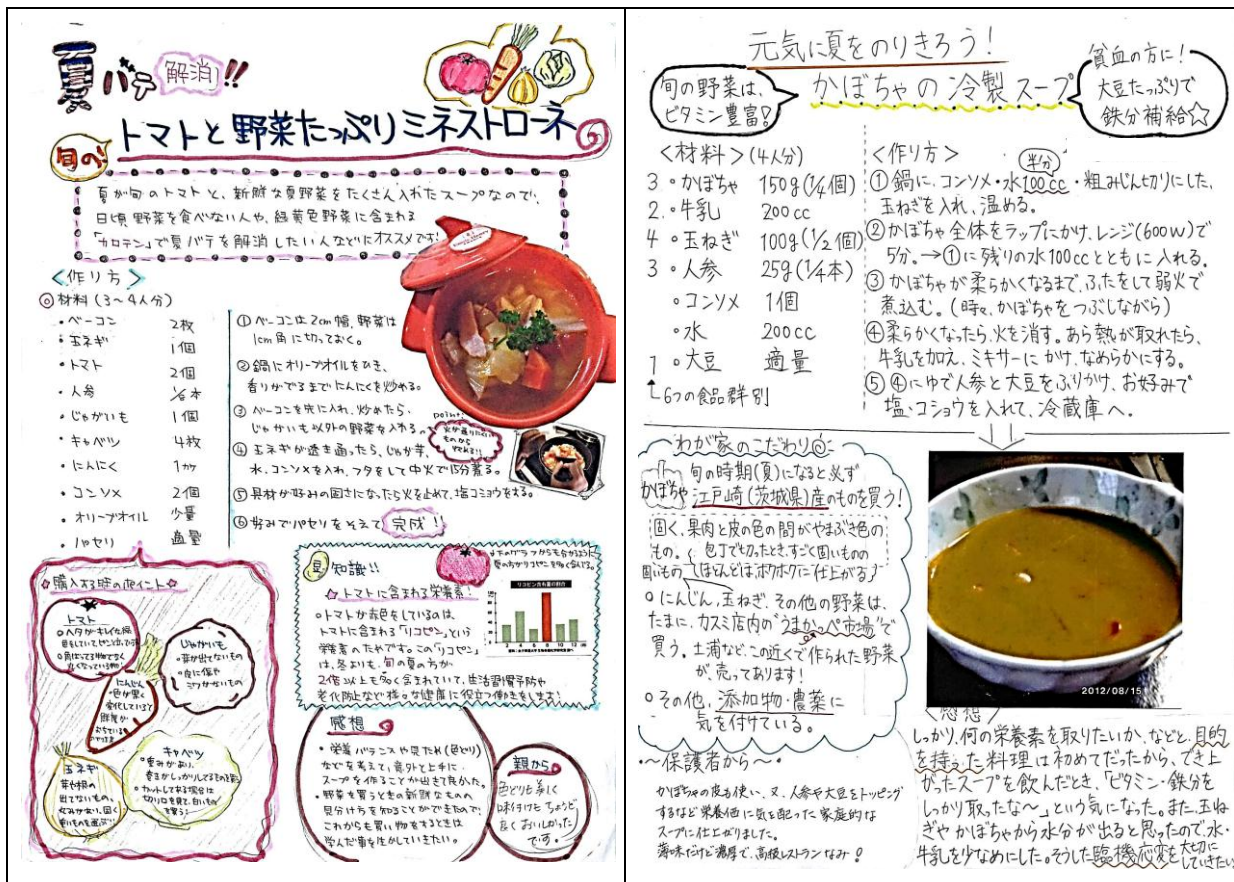 夏バテ解消!!
旬の!
トマトと野菜たっぷりミネストローネ
夏が旬のトマトと、新鮮な夏野菜をたくさん入れたスープなので、
日頃野菜を食べない人や、緑黄色野菜に含まれる
「カロテン」で夏バテを解消したい人などにオススメです!
<作り方>
◎材料(3~4人分)
・ベーコン 2枚
・玉ネギ 1個
・トマト 2個
・人参
・じゃがいも 1個
・キャベツ 4枚
・にんにく 1カケ
・コンソメ 2個
・オリーブオイル 少量
・パセリ 適量
① ベーコンは2cm幅、野菜は
1cm角に切っておく。
② 鍋にオリーブオイルをひき、
香りがでるまでにんにくを炒める。
③ ベーコンを先に入れ、炒めたら、
じゃがいも以外の野菜を入れる。
point!
火が通りにくい
ものから
④ 玉ネギが透き通ったら、じゃが芋、
水、コンソメを入れ、フタをして中火で15分煮る。
⑤ 具材が好みの固さになったら火を止めて、塩コショウをする。
⑥ 好みでパセリをそえて完成!!
☆購入する際のポイント☆
トマト
じゃがいも
・芽が出てないもの
・皮に傷や
シワがないもの
にんじん
・色が濃く
キャベツ
・重みがあり、
・カットしてある場合は
切り口を見て、白いもの
を買う!
玉ネギ
芽や根の
出てないもの。
重みがあり、固く
豆知識!!
☆トマトに含まれる栄養素!
下のグラフからも分かるように
夏の方がリコピンを多く含んでる。
リコピン含有量の割合
○トマトが赤色をしているのは、
トマトに含まれる「リコピン」という
栄養素のためです。この「リコピン」
は、冬よりも、旬の夏の方が
2倍以上も多く含まれていて、生活習慣予防や
老化防止など様々な健康に役立つ働きをします!
感想
・栄養バランスや見た目(色どり)
などを考えて、意外と上手に、
スープを作ることが出来て良かった。
・野菜を買うときの新鮮なものの
見分け方を知ることができたので、
これからも買い物をするときは
学んだ事を生かしていきたい。
親から
色どりも美しく
味付けもちょうど
良くおいしかった
です。
元気に夏をのりきろう!
旬の野菜は、
ビタミン豊富!
かぼちゃの冷製スープ
貧血の方に!
大豆たっぷりで
鉄分補給☆
<材料>(4人分)
3・かぼちゃ 150g(1/4個)
2・牛乳 200cc
4・玉ねぎ 100g(1/2個)
3・人参 25g(1/4本)
・コンソメ 1個
・水 200cc
1・大豆 適量
6つの食品群別
<作り方>
半分
① 鍋に、コンソメ・水100cc・粗みじん切りにした、
玉ねぎを入れ、温める。
② かぼちゃ全体をラップにかけ、レンジ(600w)で
5分。→①に残りの水100ccとともに入れる。
③ かぼちゃが柔らかくなるまで、ふたをして弱火で
煮込む。(時々、かぼちゃをつぶしながら)
④ 柔らかくなったら、火を消す。あら熱が取れたら、
牛乳を加え、ミキサーにかけ、なめらかにする。
⑤ ④にゆで人参と大豆をふりかけ、お好みで
塩・コショウを入れて、冷蔵庫へ。
わが家のこだわり
かぼちゃ
旬の時期(夏)になると必ず
江戸崎(茨城県)産のものを買う!
固く、果肉と皮の色の間がやまぶき色の
もの。
包丁で切ったとき、すごく固いものの
固いもの
ほとんどは、ホクホクに仕上がる
○にんじん、玉ねぎ、その他の野菜は、
たまに、カスミ店内の"うまかっぺ市場"で
買う。土浦など、この近くで作られた野菜
が、売ってあります!
○その他、添加物・農薬に
気を付けている。
~保護者から~
かぼちゃの皮も使い、又、人参や大豆をトッピング
するなど栄養価に気を配った家庭的な
スープに仕上がりました。
薄味だけど濃厚で、高級レストランなみ!
2012/08/15
<感想>
しっかり、何の栄養素を取りたいか、などと、目的
を持った料理は初めてだったから、でき上
がったスープを飲んだとき、「ビタミン・鉄分を
しっかり取ったな~」という気になった。また、玉ね
ぎやかぼちゃから水分が出ると思ったので水・
牛乳を少なめにした。そうした臨機応変を大切に
していきたい